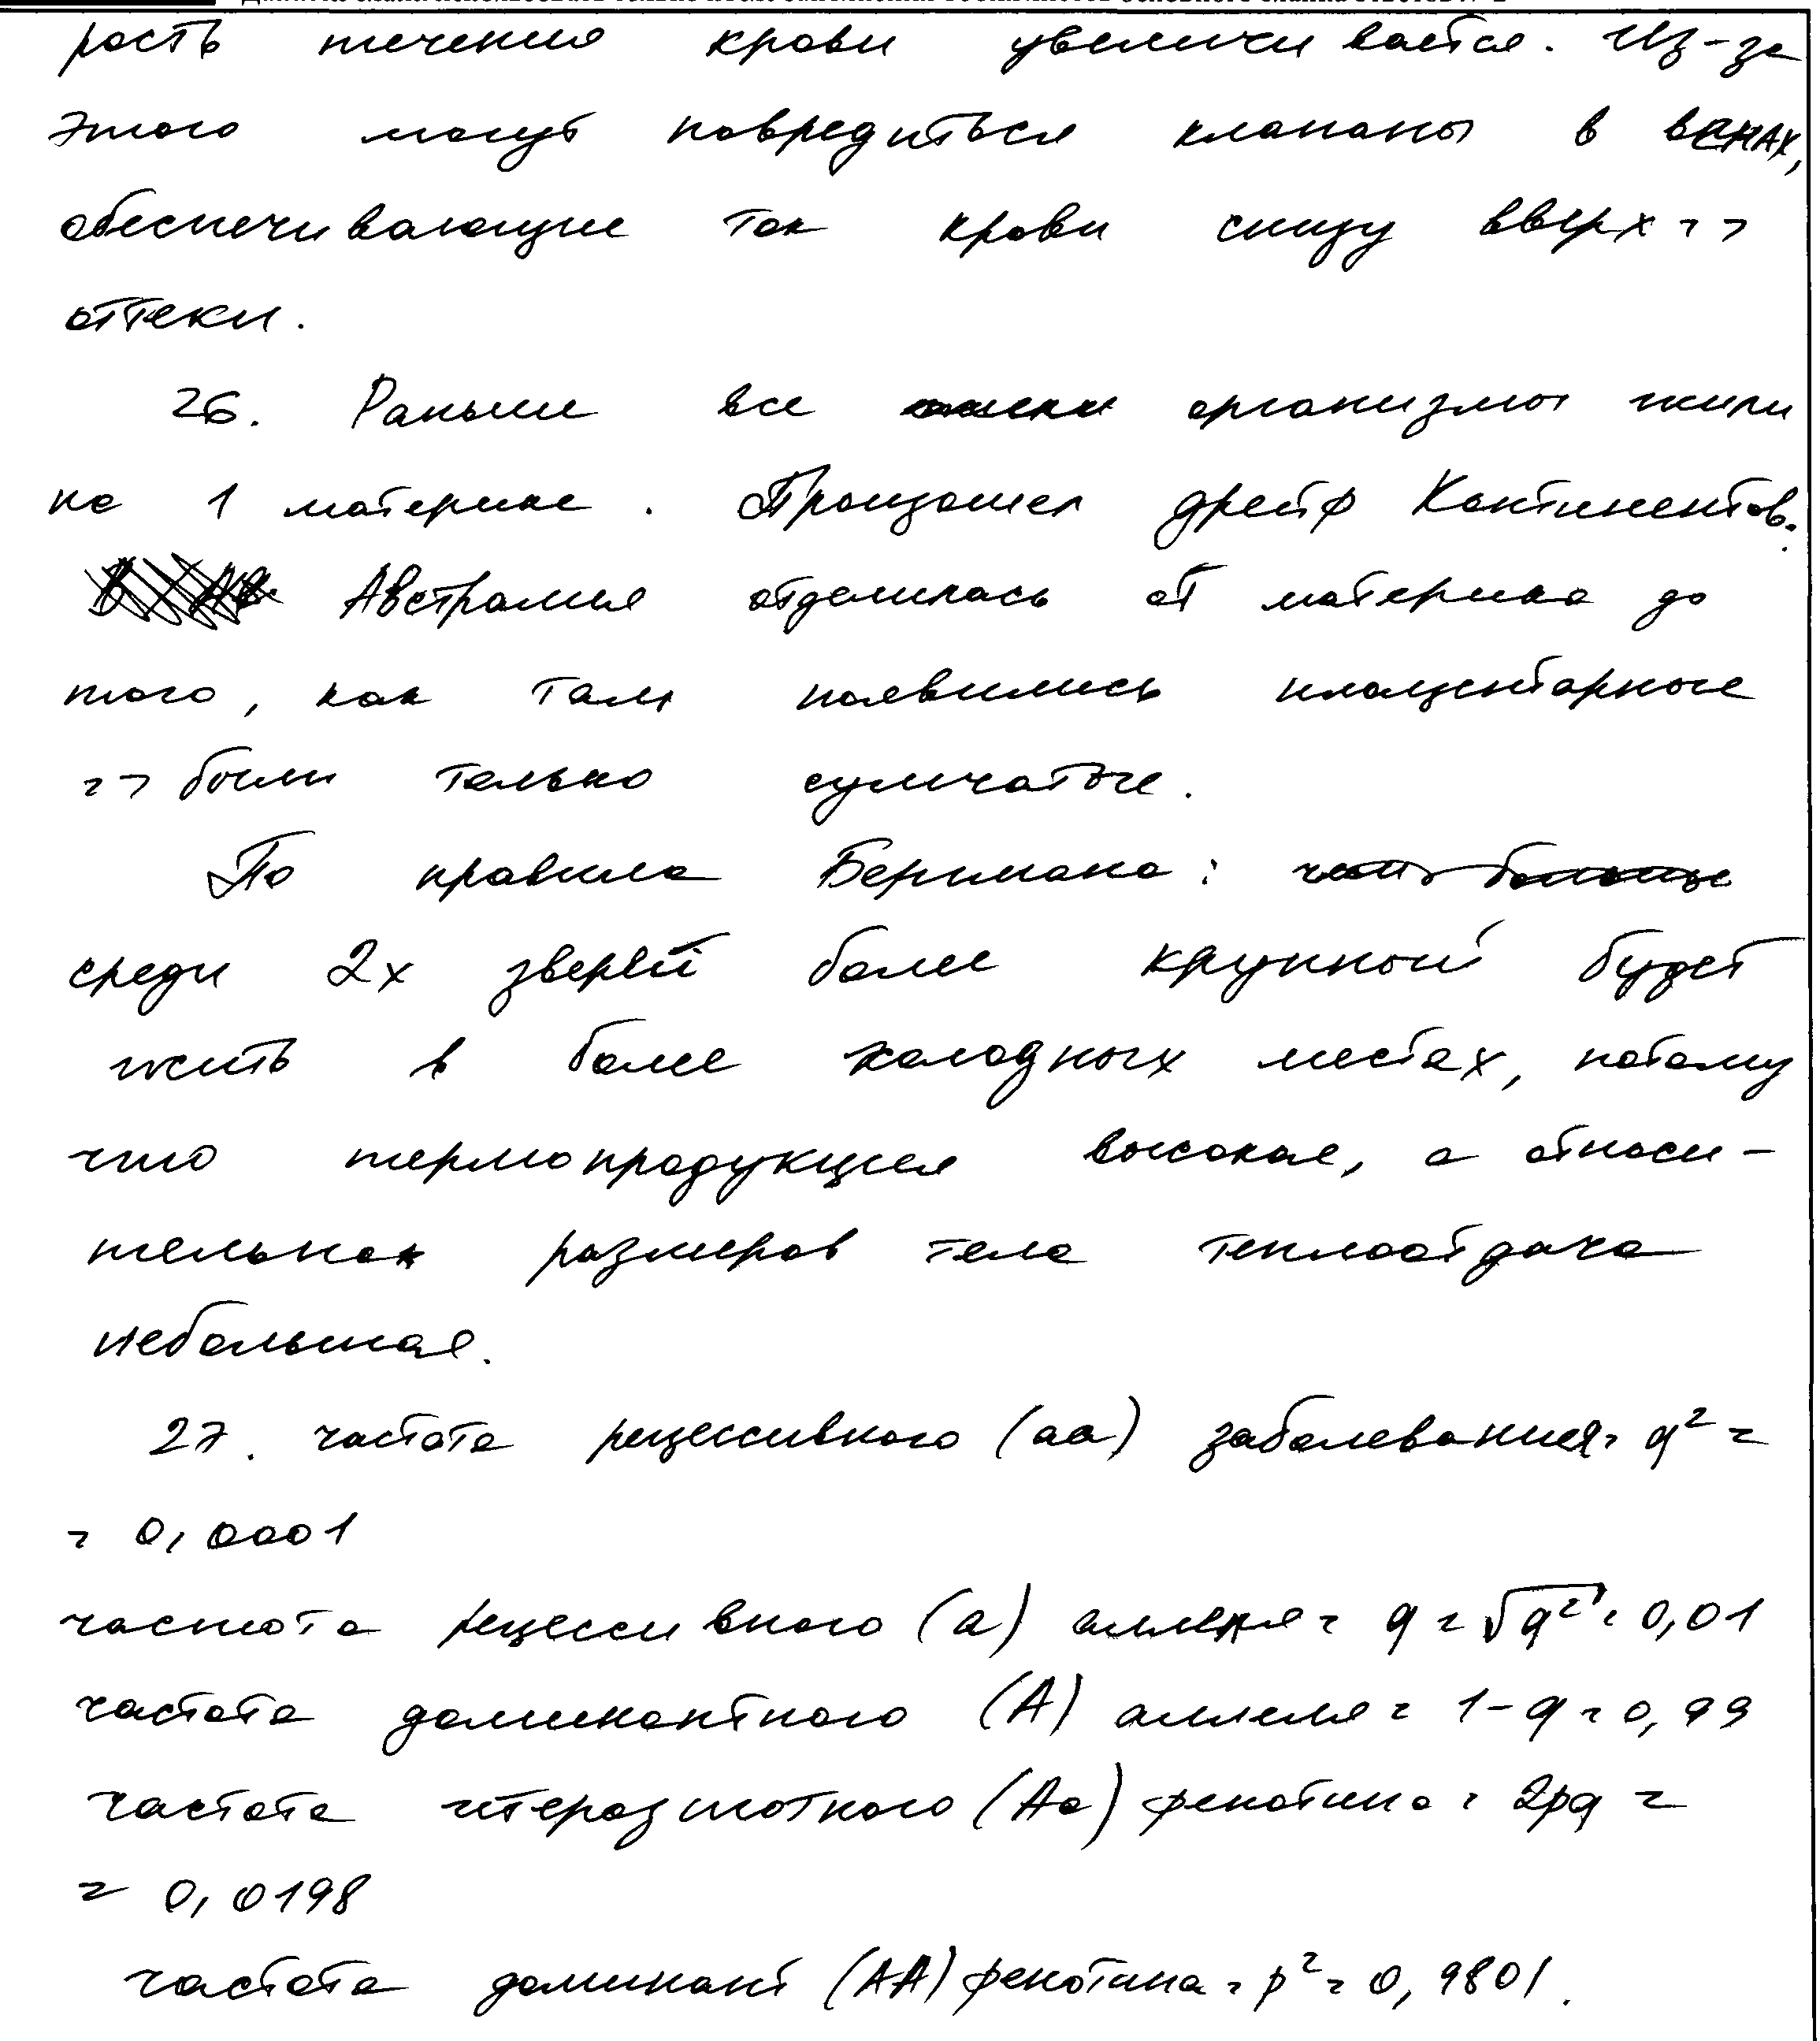 рость течения крови увеличивается. Из-за
этого могут повредиться клапаны в венах,
обеспечивающие ток крови снизу вверх =>
отеки.
26. Раньше все организмы жили
на 1 материке. Произошел дрейф Континентов.
Австралия отделилась от материка до
того, как там появились плацентарные
=> были только сумчатые.
По правила Бергмана:
среди 2х зверей более крупный будет
жить в более холодных местах, потому
что термопродукция высокая, а относи-
тельная размеров тела теплоотдача
небольшая.
27. частота рецессивного (аа) заболевания = q² =
= 0,0001
частота рецессивного (а) аллеля = q = √q² = 0,01
частота доминантного (А) аллеля = 1-q = 0,99
частота гетерозиготного (Аа) фенотипа = 2pq =
= 0,0198
частота доминант (АА) фенотипа = p² = 0,9801.